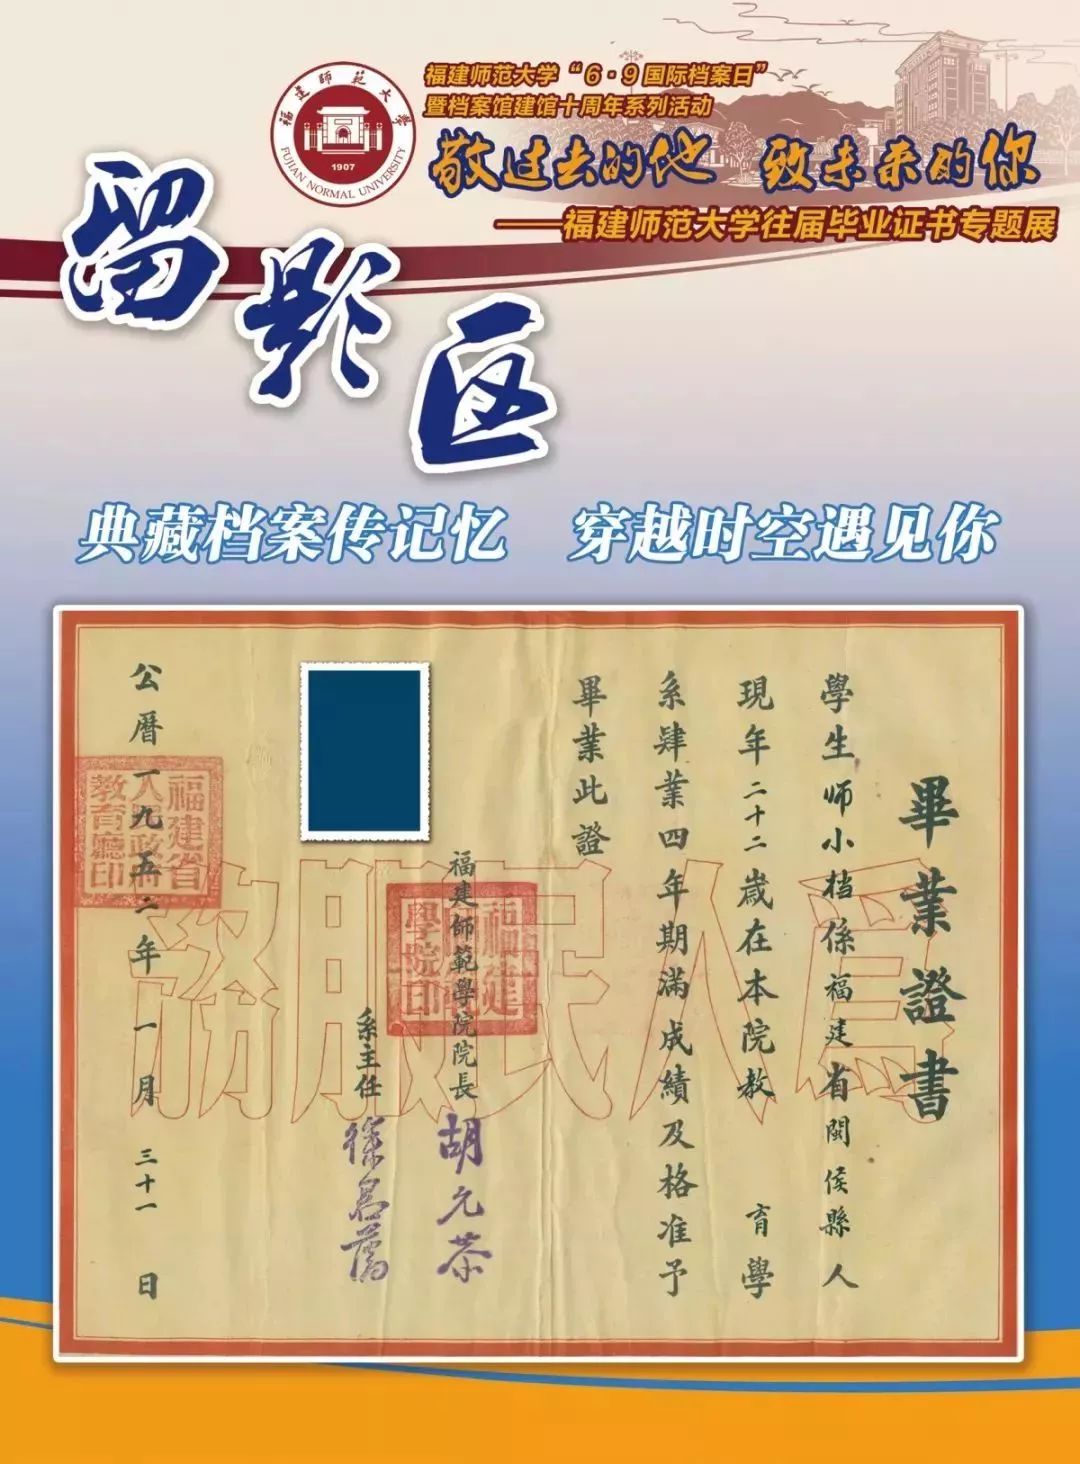 福建师范大学“6·9国际档案日”
暨档案馆建馆十周年系列活动
敬过去的他 致未来的你
——福建师范大学往届毕业证书专题展
福建师范大学
FUJIAN NORMAL UNIVERSITY
1907
留影区
典藏档案传记忆 穿越时空遇见你
畢業證書
學生师小档係福建省閩侯縣人
現年二十二歲在本院教育學
系肄業四年期滿成績及格准予
畢業此證
福建師範學院院長 胡允恭
系主任
公曆一九五二年一月三十一日
為人民服務
福建師範學院印
福建省人民政府教育廳印